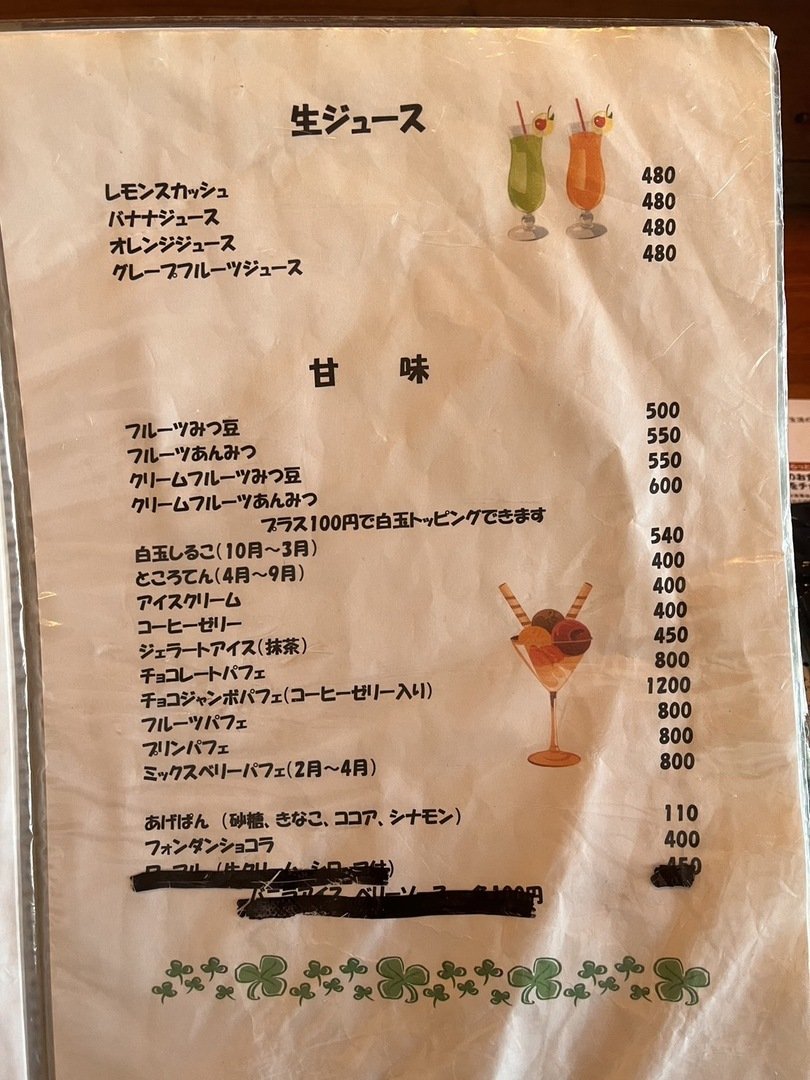 生ジュース
レモンスカッシュ 480
バナナジュース 480
オレンジジュース 480
グレープフルーツジュース 480
甘 味
フルーツみつ豆 500
フルーツあんみつ 550
クリームフルーツみつ豆 550
クリームフルーツあんみつ 600
プラス100円で白玉トッピングできます
白玉しるこ(10月～3月) 540
ところてん(4月～9月) 400
アイスクリーム 400
コーヒーゼリー 400
ジェラートアイス(抹茶) 450
チョコレートパフェ 800
チョコジャンボパフェ(コーヒーゼリー入り) 1200
フルーツパフェ 800
プリンパフェ 800
ミックスベリーパフェ(2月～4月) 800
あげぱん (砂糖、きなこ、ココア、シナモン) 110
フォンダンショコラ 400
450
バニラアイス、ベリーソース 各100円